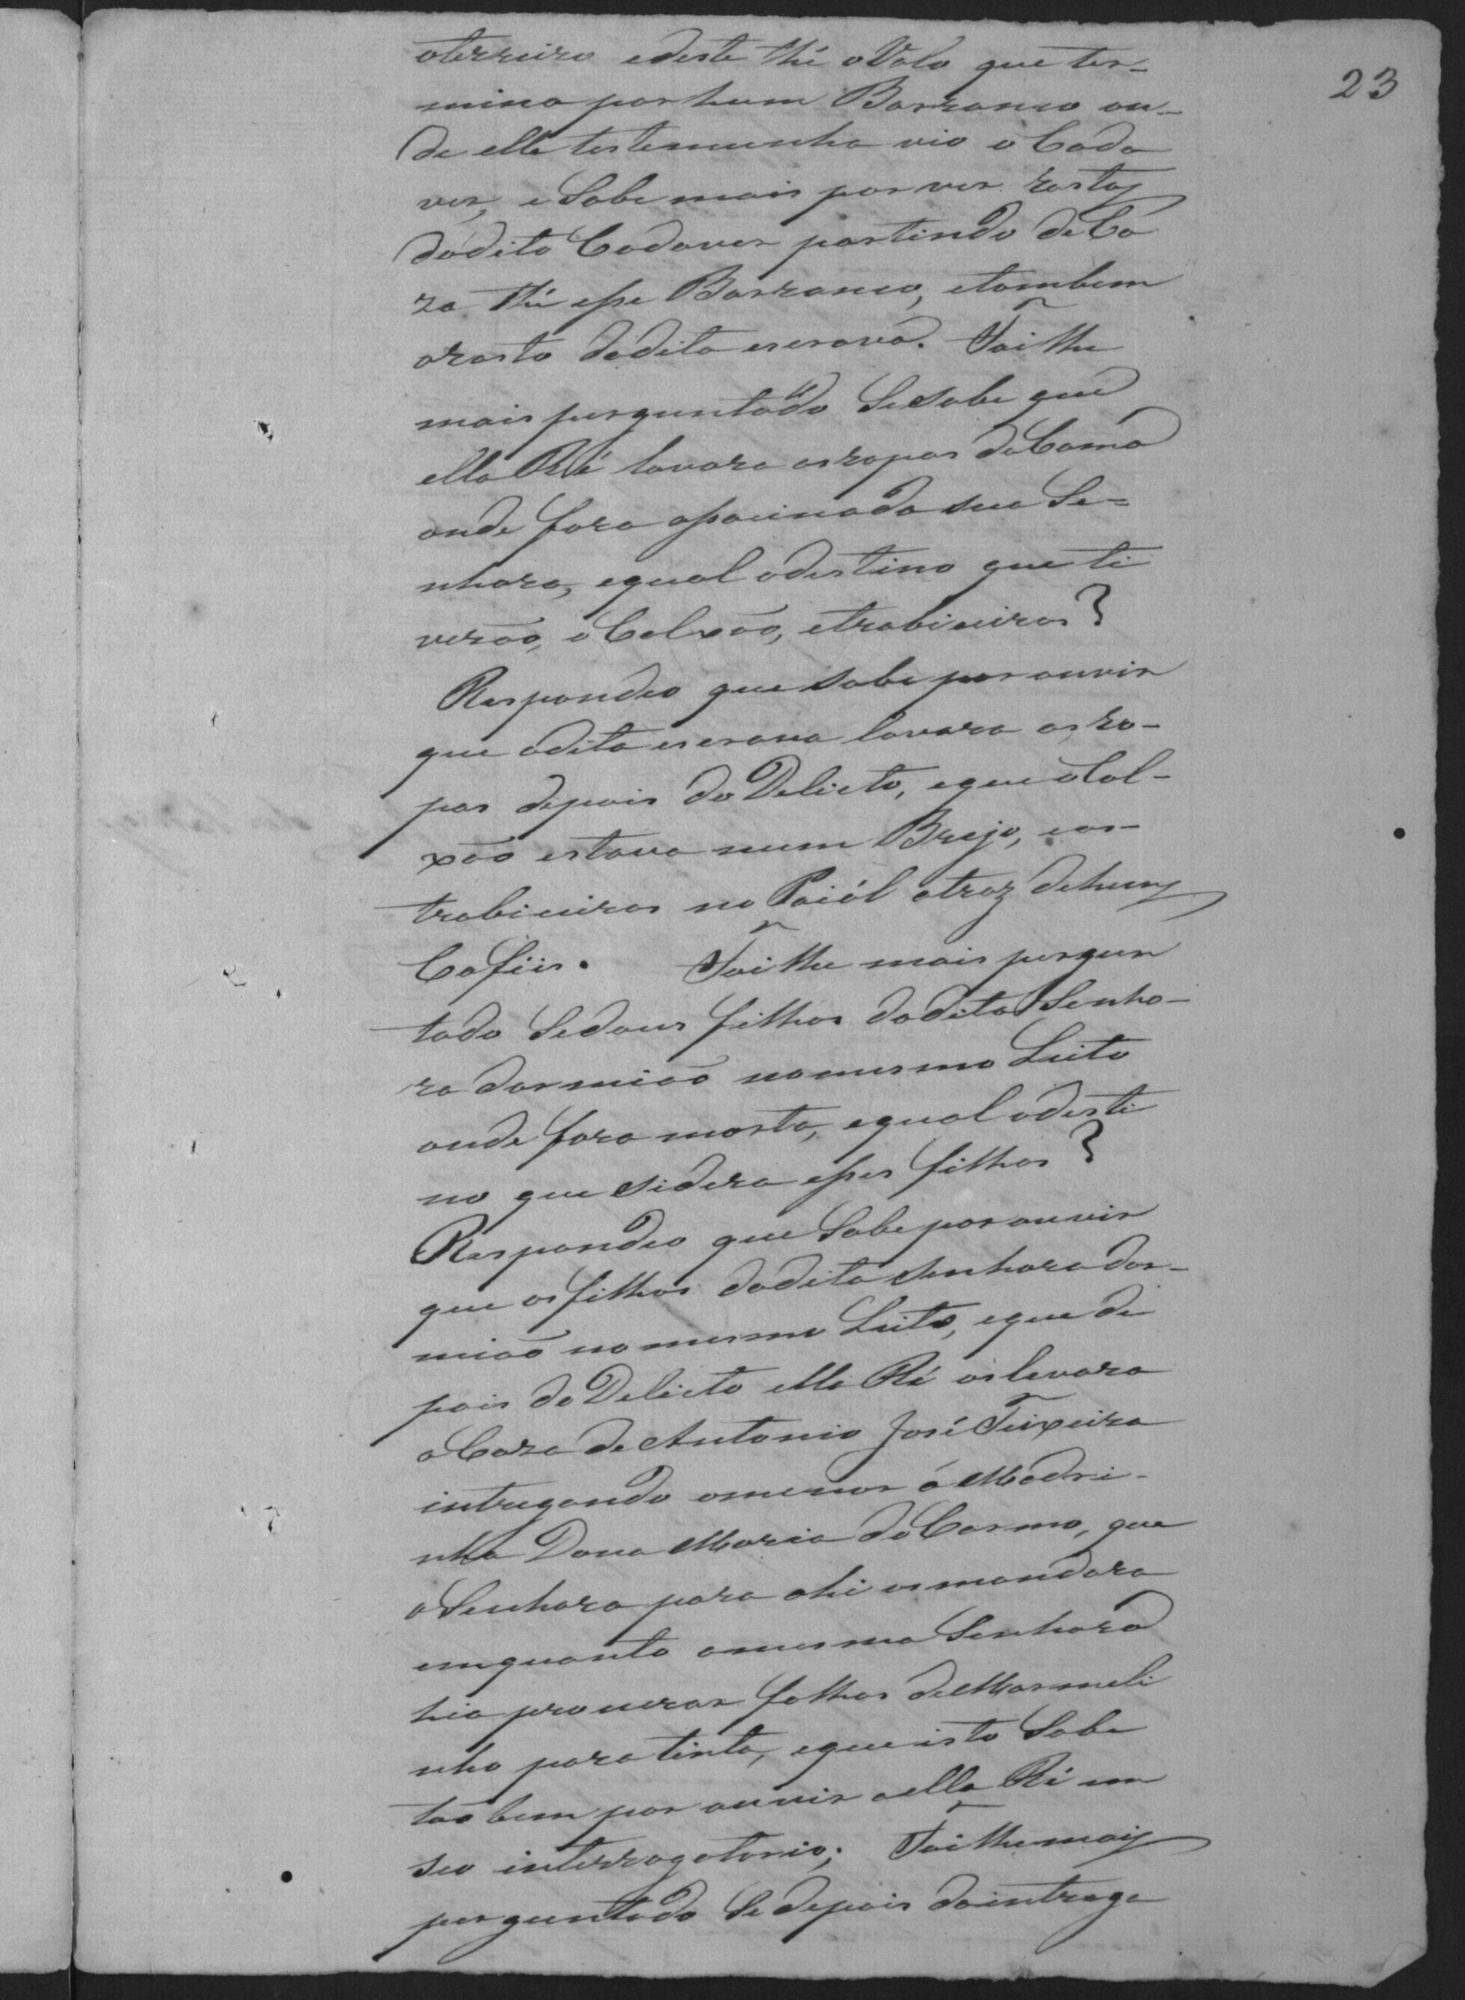 23
oterreiro edeste thé oValo que ter-
mina por hum Barranco on-
de elle testemunha vio o Cada
ver, e Sabe mais por ver rastos
dodito Cadaver partindo de Ca
za thé esse Barranco, etambem
orasto dadita escrava. Foilhe
mais perguntado Sesabe que
ella Ré lavara asropas daCama
onde fora assacinada sua Se=
nhora, equal odestino que ti
verão, o Colxão, etrabiceiros?
Respondeo que sabe por ouvir
que adita escrava lavara as ro-
pas depois do Delicto, eque o Col-
xão estava num Brejo, eos-
trabiceiros no Paiól atraz dehuns
Cafeis. Foilhe mais pergun
tado Sedous filhos dadita Senho-
ra dormião nomesmo Leito
onde fora morta, equal odesti
no que sidera esses filhos?
Respondeo que Sabe por ouvir
que os filhos dadita Senhora dor-
mião no mesmo Leito, eque de
pois do Delicto ella Ré oslevara
a Caza de Antonio José Teixeira
intregando omenor á Madri-
nha Dona Maria do Carmo, que
a Senhora para ahi osmandara
emquanto amesma Senhora
hia procurar folhas de Marmeli
nho para tinta, equeisto Sabe
tão bem por ouvir aella Ré em
seo interrogatorio; Foilhe mais
perguntado Sedepois daintrega